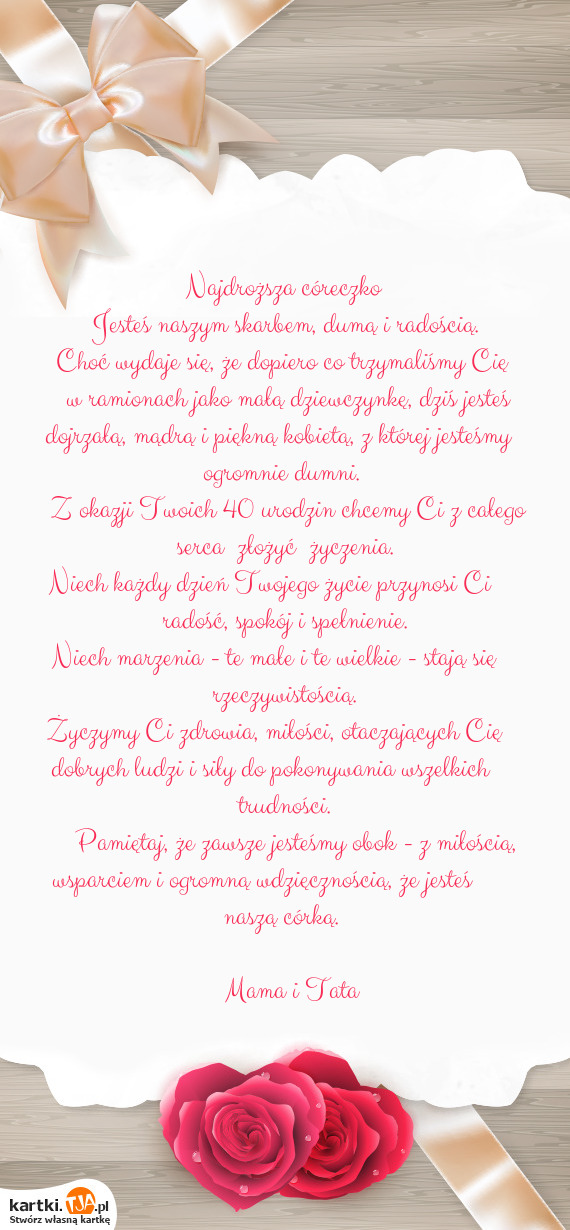 Najdroższa córeczko
Jesteś naszym skarbem, dumą i radością.
Choć wydaje się, że dopiero co trzymaliśmy Cię
w ramionach jako małą dziewczynkę, dziś jesteś
dojrzałą, mądrą i piękną kobietą, z której jesteśmy
ogromnie dumni.
Z okazji Twoich 40 urodzin chcemy Ci z całego
serca złożyć życzenia.
Niech każdy dzień Twojego życie przynosi Ci
radość, spokój i spełnienie.
Niech marzenia - te małe i te wielkie - stają się
rzeczywistością.
Życzymy Ci zdrowia, miłości, otaczających Cię
dobrych ludzi i siły do pokonywania wszelkich
trudności.
Pamiętaj, że zawsze jesteśmy obok - z miłością,
wsparciem i ogromną wdzięcznością, że jesteś
naszą córką.
Mama i Tata
kartki.TJA.pl
Stwórz własną kartkę